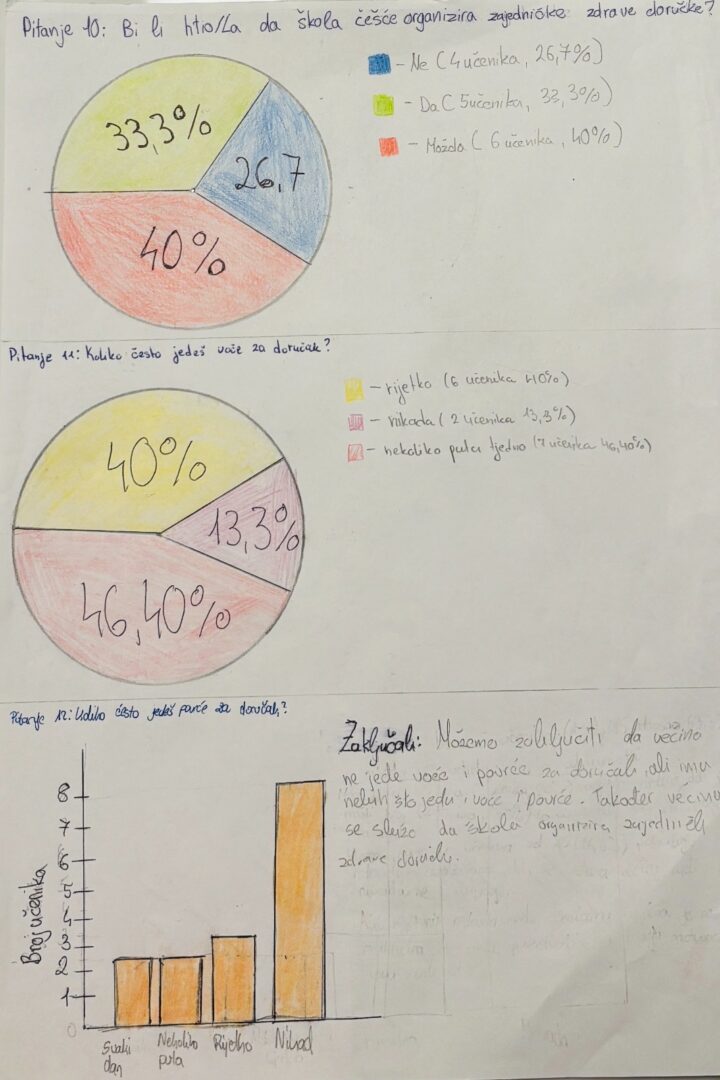 Pitanje 10: Bi li htio/la da škola češće organizira zajedničke zdrave doručke?
- Ne (4 učenika, 26,7%)
- Da (5 učenika, 33,3%)
- Možda (6 učenika, 40%)
33,3%
26,7
40%
Pitanje 11: Koliko često jedeš voće za doručak?
- rijetko (6 učenika 40%)
- nikada (2 učenika 13,3%)
- nekoliko puta tjedno (7 učenika 46,40%)
40%
13,3%
46,40%
Pitanje 12: Koliko često jedeš povrće za doručak?
Zaključak: Možemo zaključiti da većina
ne jede voće i povrće za doručak, ali ima
nekih što jedu i voće i povrće. Također većina
se slaže da škola organizira zajedničke
zdrave doručke.
Broj učenika
8
7
6
5
4
3
2
1
0
Svaki dan
Nekoliko puta
Rijetko
Nikad